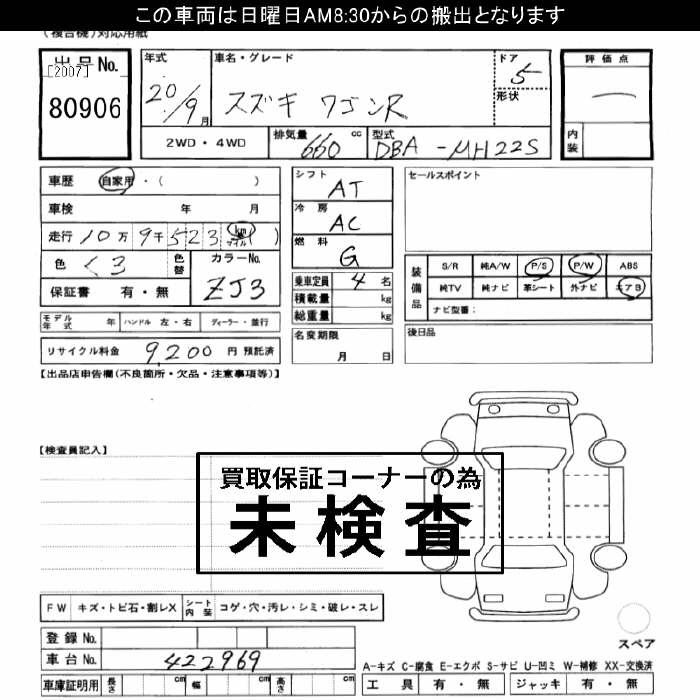 この車両は日曜日AM8:30からの搬出となります
(複合機)対応用紙
出品No. [2007] 80906
年式 20/9月
車名・グレード スズキ ワゴンR
ドア 5
形状
評価点 ー
内装
2WD・4WD
排気量 660 cc
型式 DBA-MH22S
車歴 自家用・( )
車検 年 月
走行 10万9千523 km マイル ( )
色 くろ 色替
カラーNo. ZJ3
保証書 有・無
シフト AT
冷房 AC
燃料 G
乗車定員 4名
積載量 kg
総重量 kg
セールスポイント
装備品
S/R 純A/W P/S P/W ABS
純TV 純ナビ 革シート 外ナビ エアB
ナビ型番:
モデル年式 年 ハンドル 左・右 ディーラー・並行
リサイクル料金 9,200 円 預託済
名変期限 月 日
後日品
【出品店申告欄(不良箇所・欠品・注意事項等)】
【検査員記入】
買取保証コーナーの為
未検査
FW キズ・トビ石・割レX シート内装 コゲ・穴・汚レ・シミ・破レ・スレ
スペア
登録No.
車台No. 422969
A-キズ C-腐食 E-エクボ S-サビ U-凹ミ W-補修 XX-交換済
車庫証明用 長さ cm 幅 cm 高さ cm
工具 有・無 ジャッキ 有・無